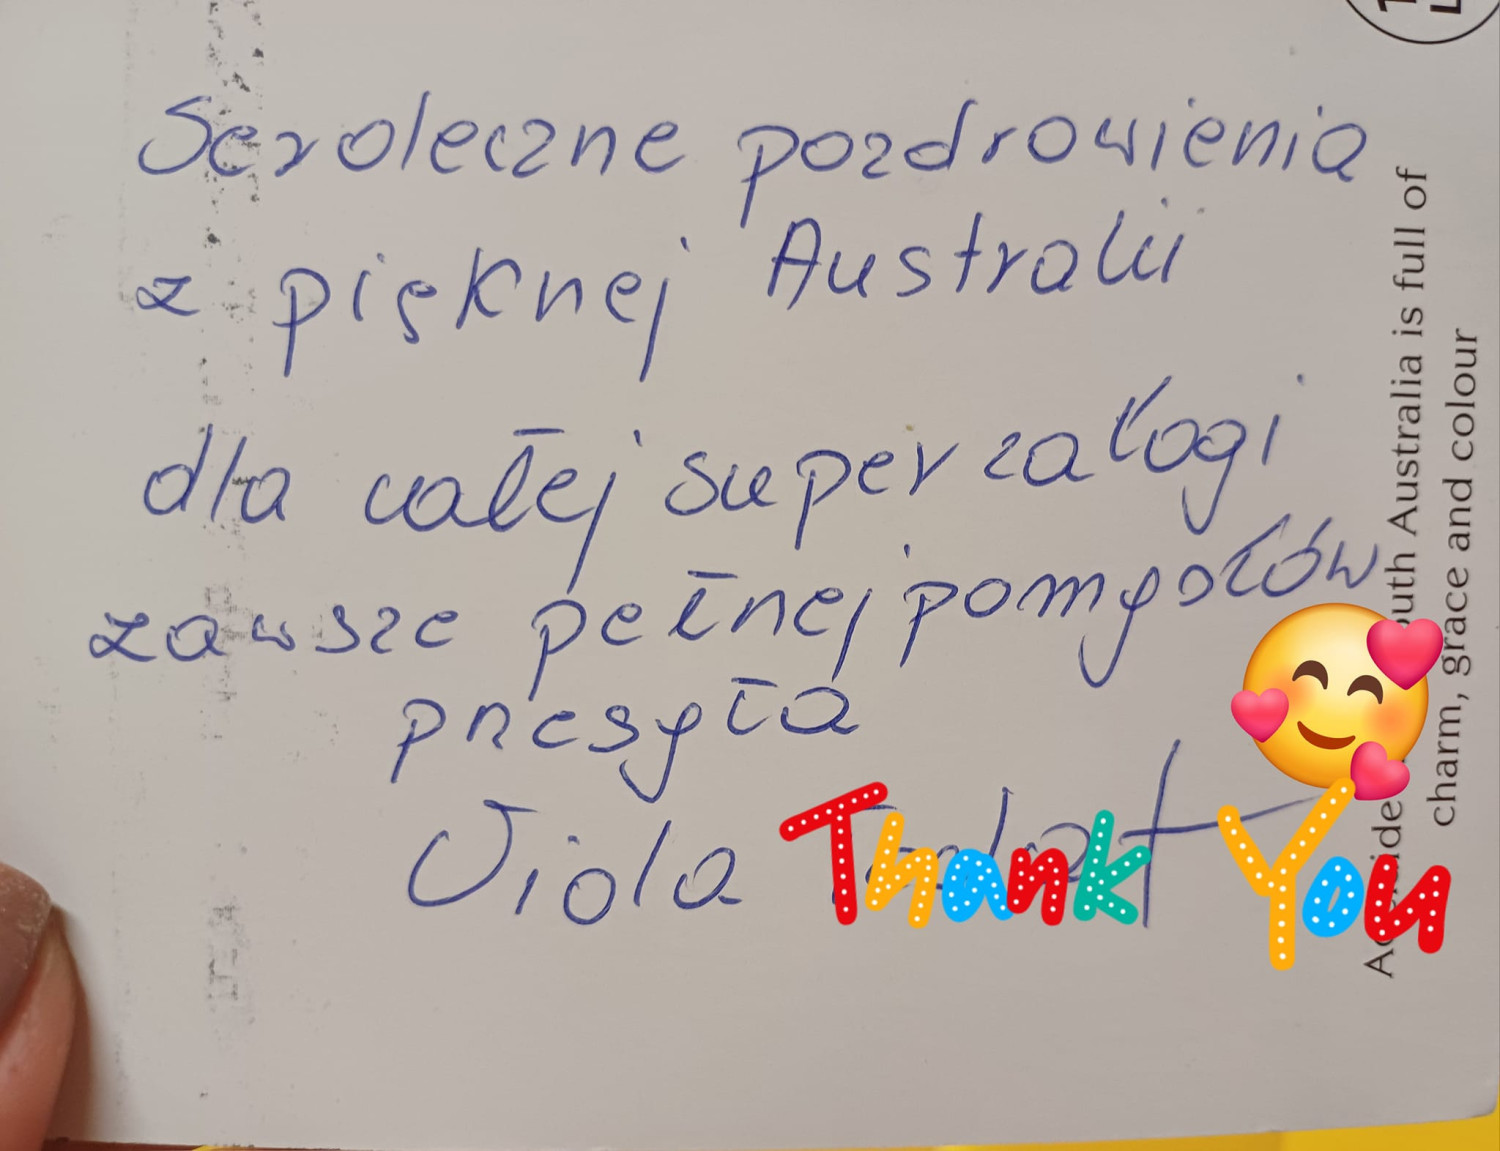 Serdeczne pozdrowienia
z pięknej Australii
dla całej super załogi
zawsze pełnej pomysłów
przesyła
Viola
Thank You
South Australia is full of
charm, grace and colour